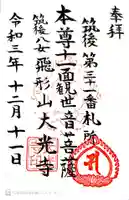 奉拝
筑後第三十一番札所
本尊十一面観世音菩薩
筑後八女飛形山大光寺
令和三年十二月十一日